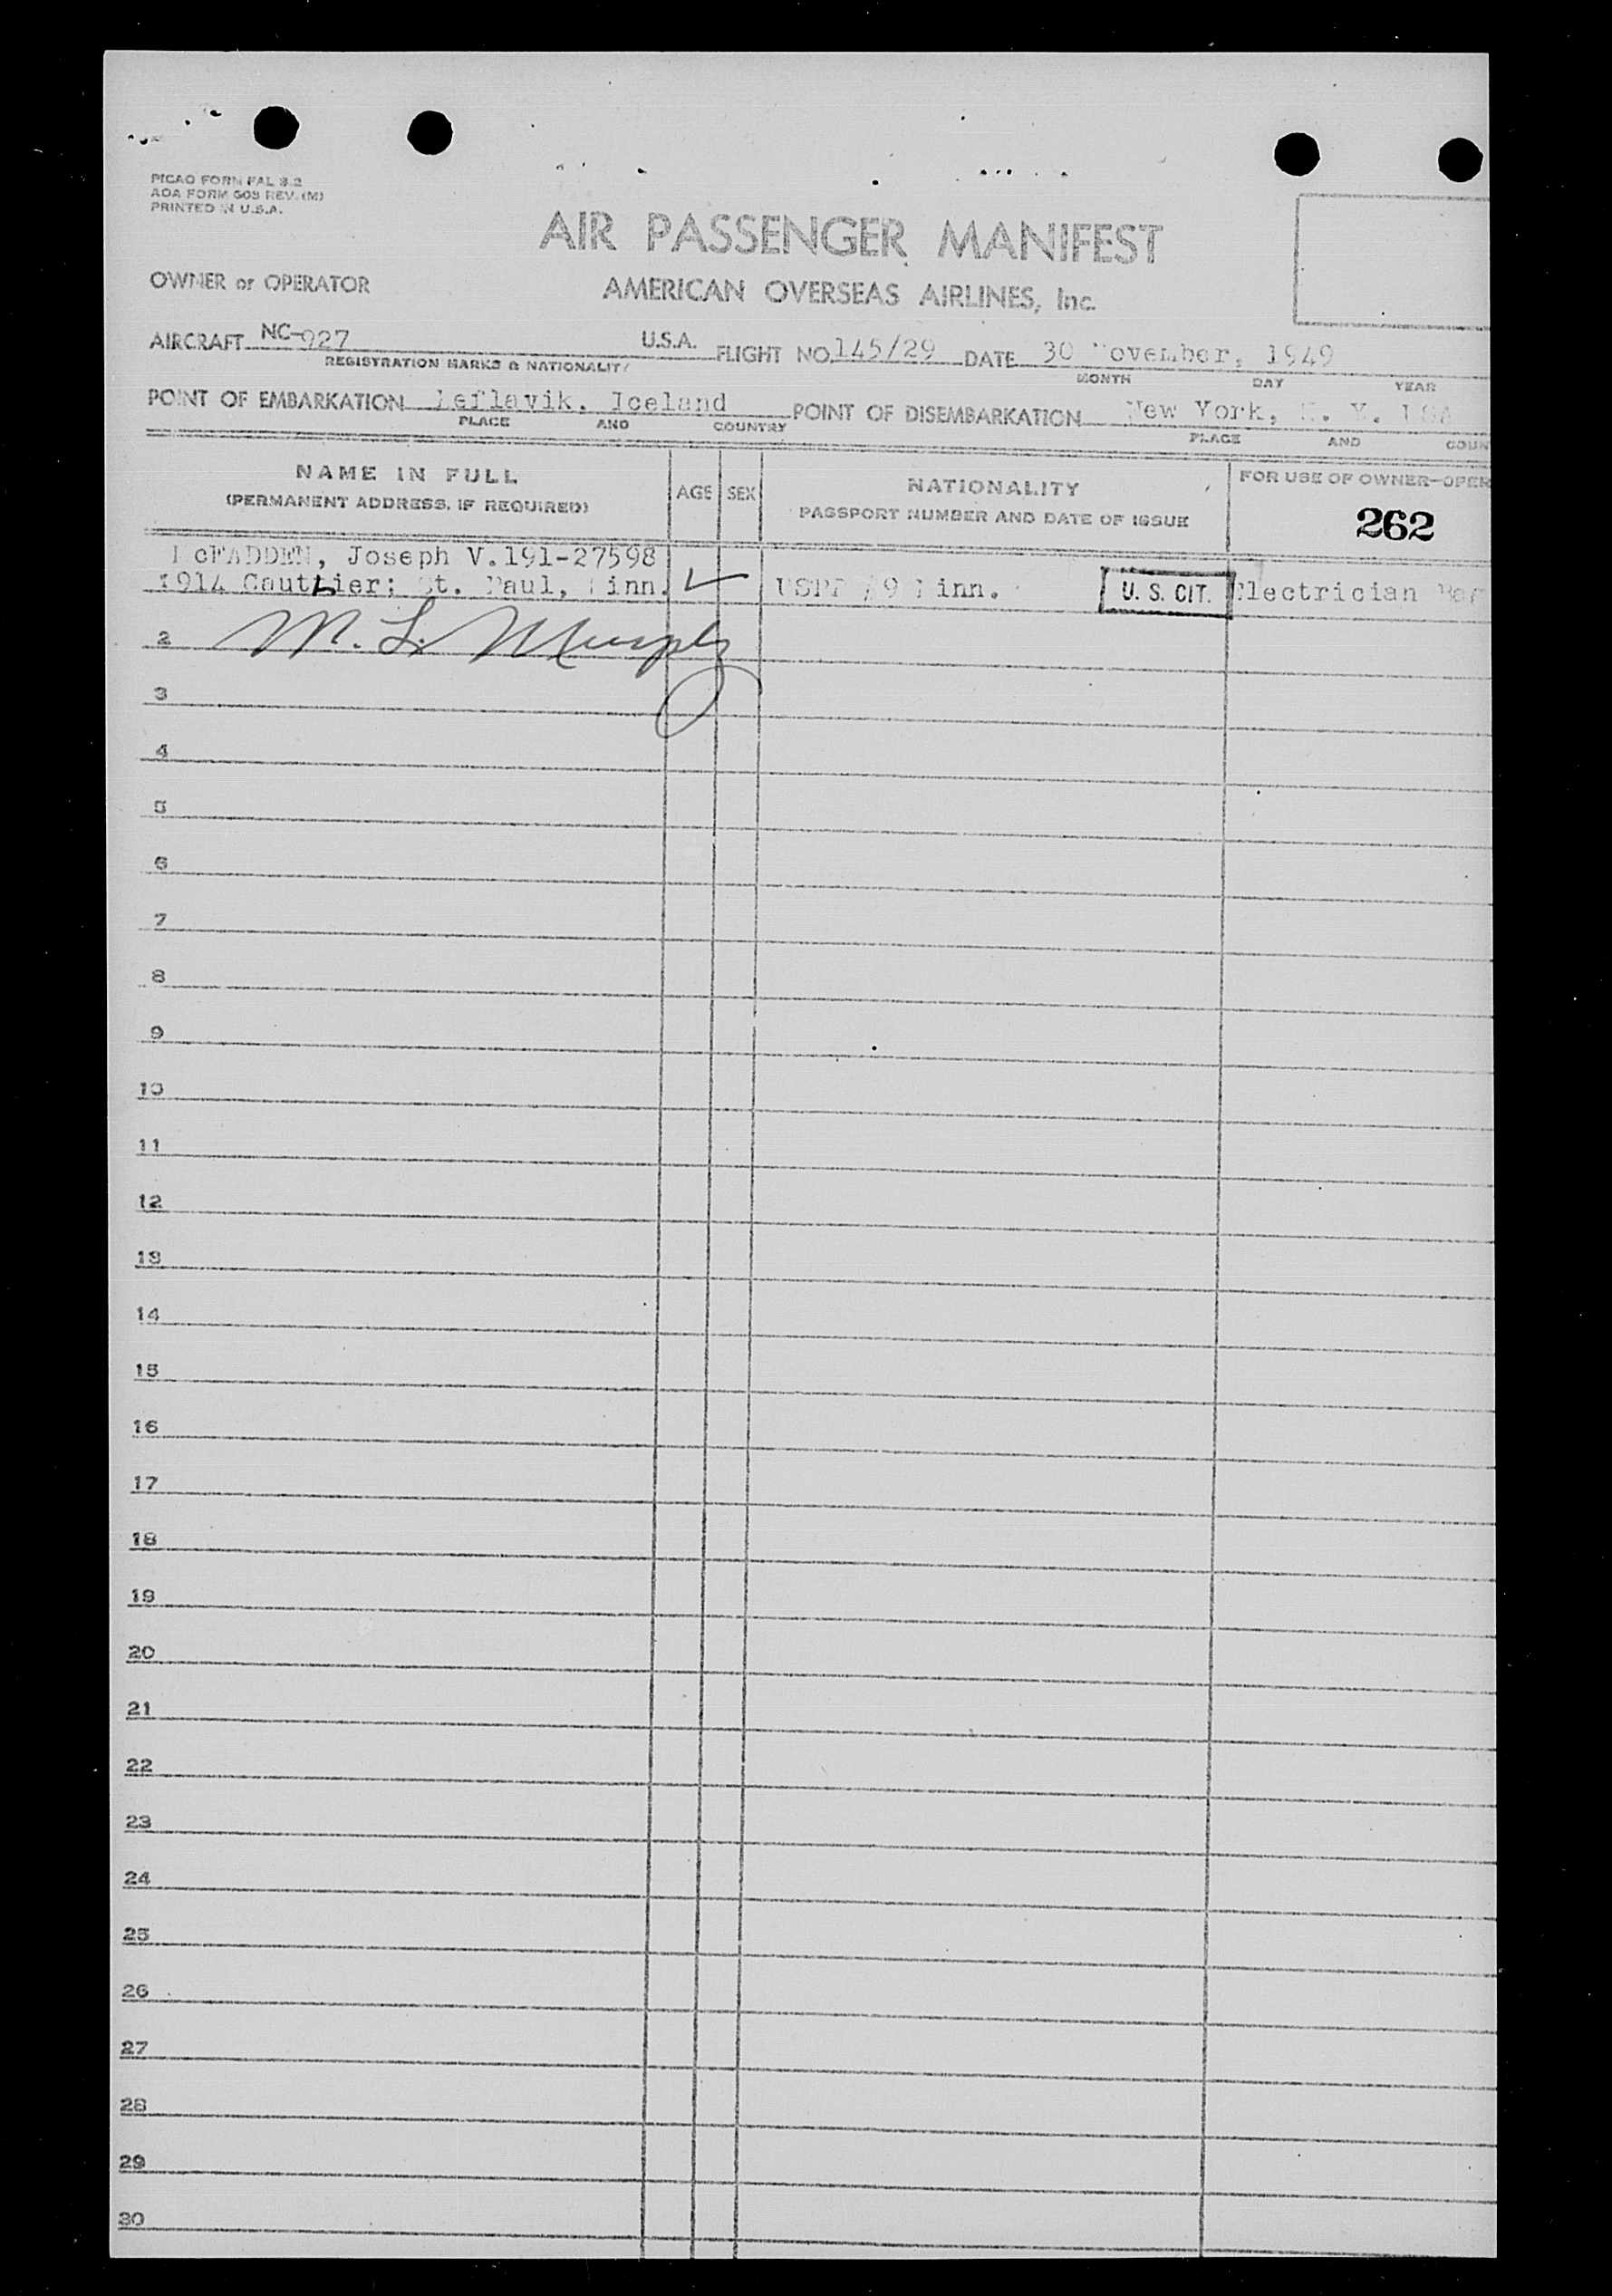 PICAO FORM FAL 3.2
AOA FORM 603 REV. (M)
PRINTED IN U.S.A.
AIR PASSENGER MANIFEST
OWNER or OPERATOR AMERICAN OVERSEAS AIRLINES, Inc.
AIRCRAFT NC-927 U.S.A. FLIGHT NO. 145/29 DATE 30 November, 1949
REGISTRATION MARKS & NATIONALITY MONTH DAY YEAR
POINT OF EMBARKATION Keflavik, Iceland POINT OF DISEMBARKATION New York, N. Y. USA
PLACE AND COUNTRY PLACE AND COUN
NAME IN FULL
(PERMANENT ADDRESS, IF REQUIRED)
AGE SEX
NATIONALITY
PASSPORT NUMBER AND DATE OF ISSUE
FOR USE OF OWNER-OPER
262
McFADDEN, Joseph V. 191-27598
1914 Gauthier; St. Paul, Minn. Minn. U. S. CIT. Electrician
2 M. L. Murphy
3
4
5
6
7
8
9
10
11
12
13
14
15
16
17
18
19
20
21
22
23
24
25
26
27
28
29
30